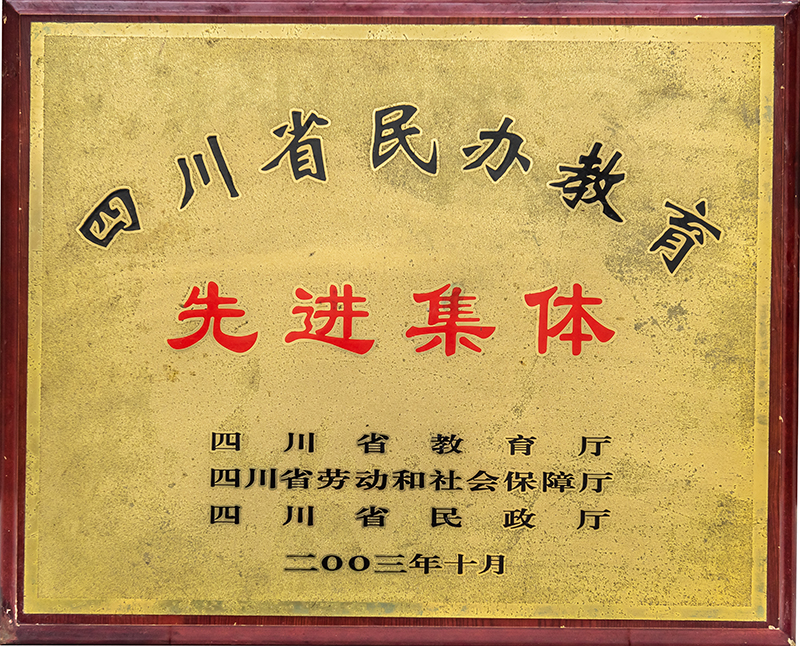 四川省民办教育
先进集体
四川省教育厅
四川省劳动和社会保障厅
四川省民政厅
二〇〇三年十月